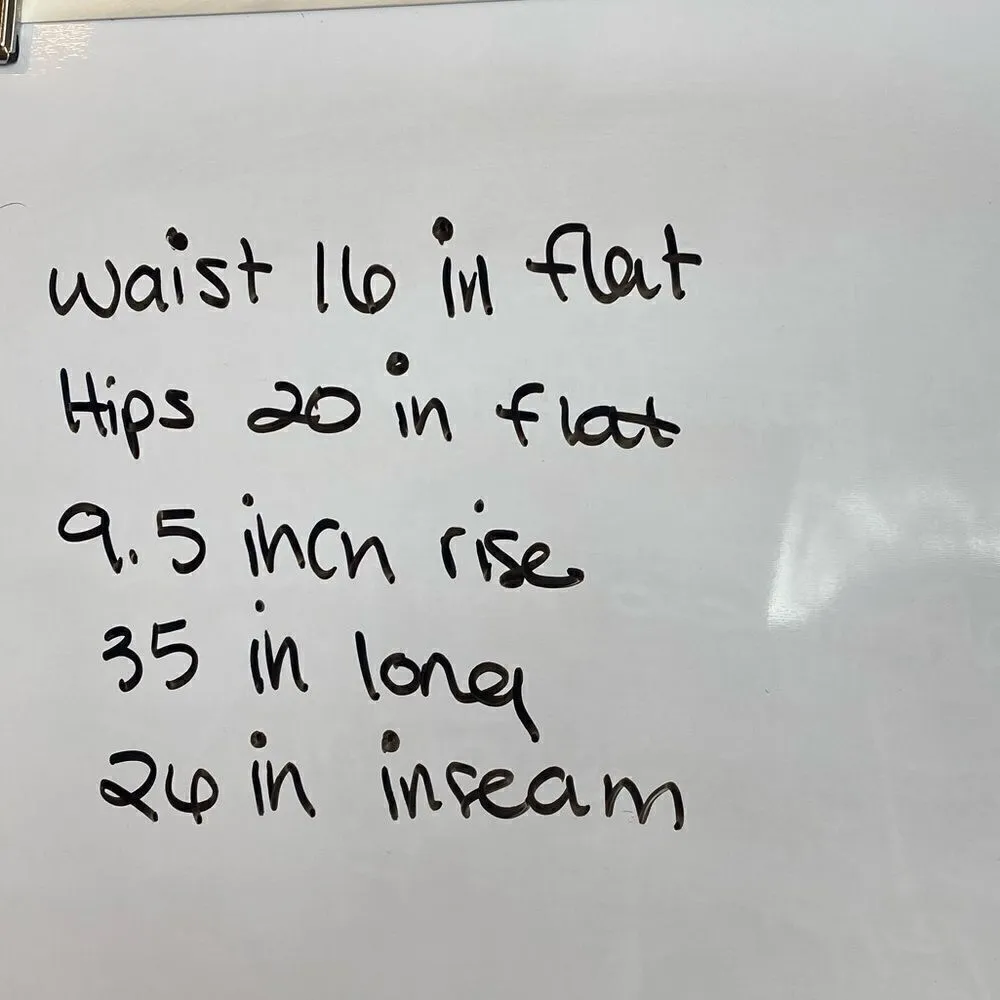 waist 16 in flat
Hips 20 in flat
9.5 inch rise
35 in long
26 in inseam